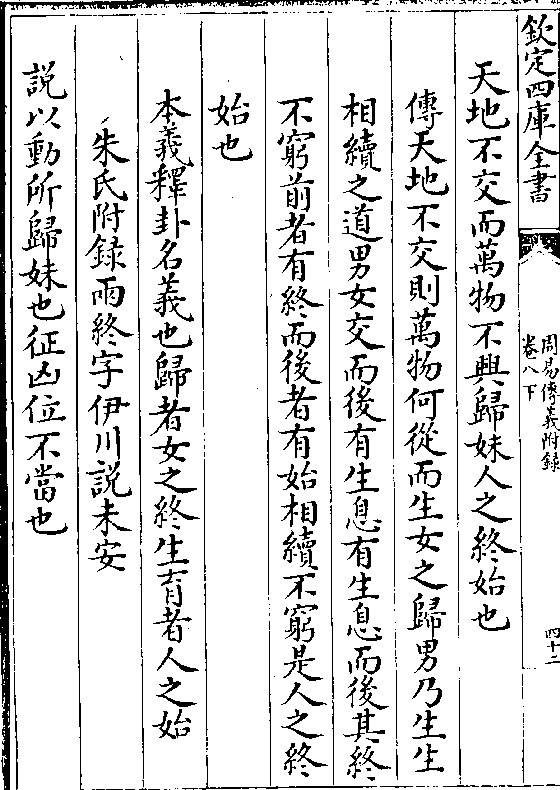 欽定四庫全書
周易傳義附錄
卷八下
四十二
天地不交而萬物不興歸妹人之終始也
傳天地不交則萬物何從而生女之歸男乃生生
相續之道男女交而後有生息有生息而後其終
不窮前者有終而後者有始相續不窮是人之終
始也
本義釋卦名義也歸者女之終生育者人之始
朱氏附錄兩終字伊川説未安
説以動所歸妹也征凶位不當也